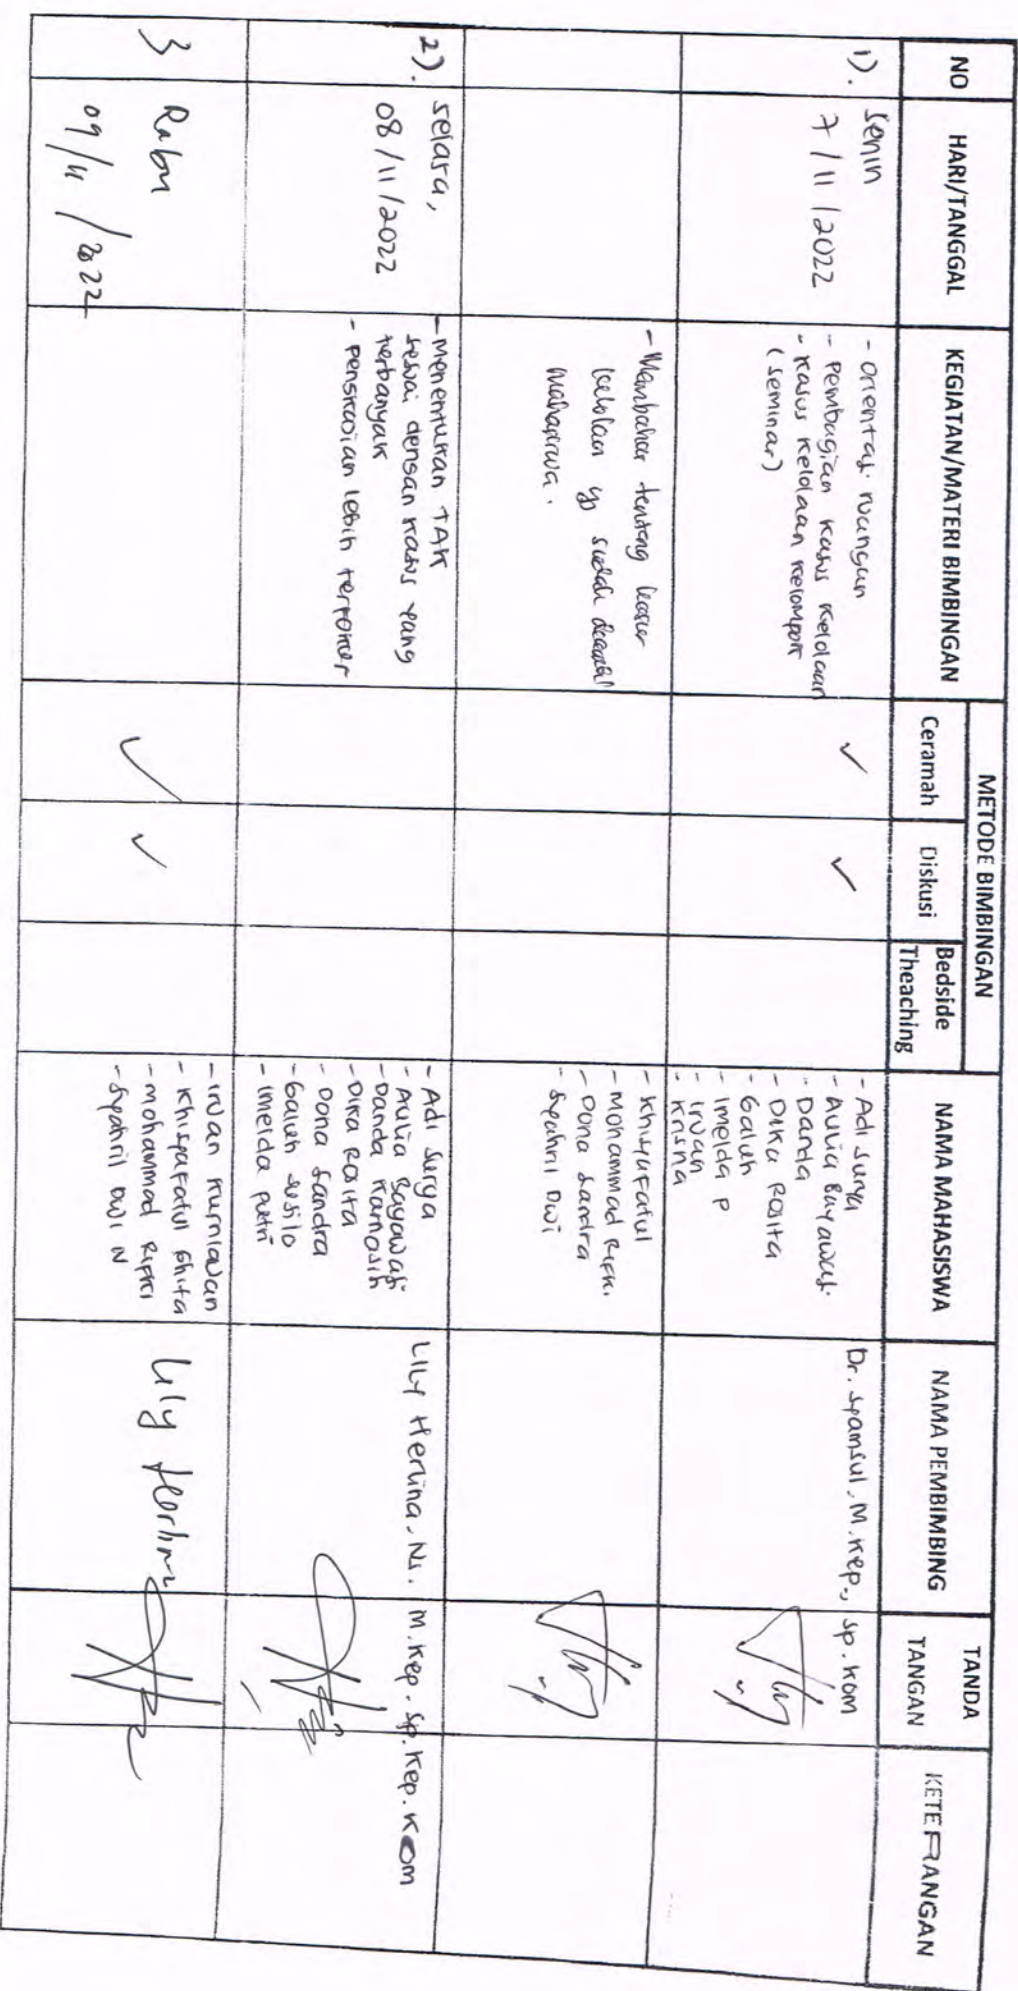 NO
HARI/TANGGAL
KEGIATAN/MATERI BIMBINGAN
METODE BIMBINGAN
Ceramah
Diskusi
Bedside
Theaching
NAMA MAHASISWA
NAMA PEMBIMBING
TANDA
TANGAN
KETERANGAN
1).
Senin
7/11/2022
- Orientasi ruangan
- Pembagian kasus kelolaan
- Kasus kelolaan kelompok
(seminar)
✓
✓
- Adi Surya
- Aulia Bayawati
- Danda
- Dika Rosita
- Galuh
- Imelda P
- Irvan
- Krisna
Dr. Syamsul, M.Kep., Sp.Kom
- Membahas tentang kasus
kelolaan yg sudah
Mahasiswa.
- Khisyafatul
- Mohammad Rifki
- Dona Sandra
- Syahril Dwi
2).
Selasa,
08/11/2022
- Menentukan TAK
sesuai dengan kasus yang
terbanyak
- Pengkajian lebih terfokus
- Adi Surya
- Aulia Bayawati
- Danda
- Dika Rosita
- Dona Sandra
- Galuh Susilo
- Imelda Putri
Lily Herlina, Ns. M.Kep. Sp.Kep.Kom
3
Rabu
09/11/2022
✓
✓
- Irvan Kurniawan
- Khisyafatul Ghita
- Mohammad Rifki
- Syahril Dwi N
Lily Herlina